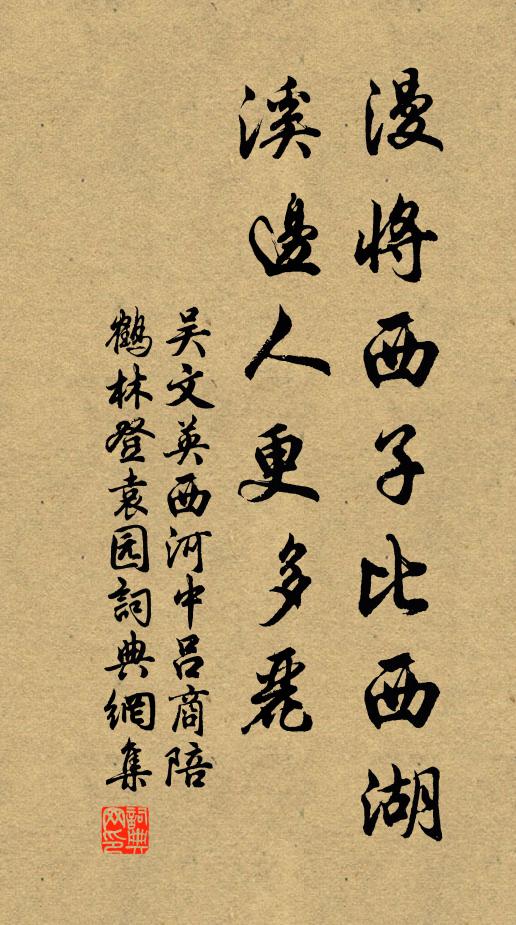 漫将西子比西湖
溪邊人更多麗
吴文英西河中吕商陪
鶴林登袁园詞典網集
詞典网印